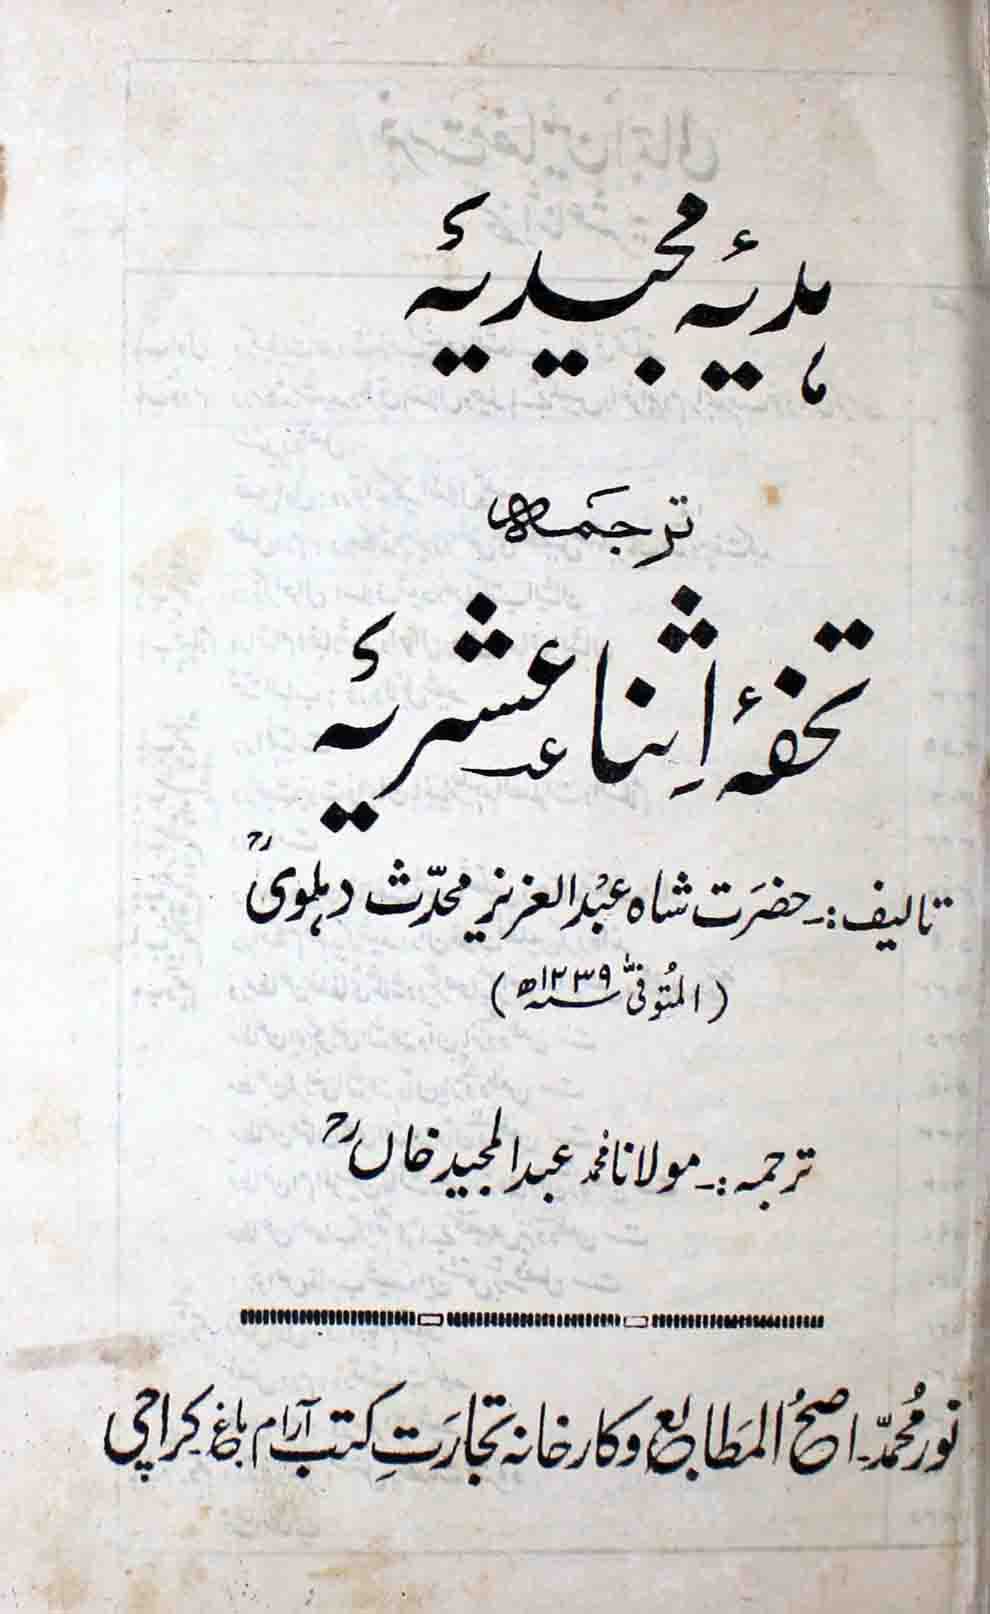 ہدیۂ مجیدیہٴ
ترجمہ
تحفۂ اِثنا عشریہ
تالیف:۔ حضرَت شاہ عبْدالعزیز محدّث دہلویؒ
(المُتوفیّٰ ۱۲۳۹ھ)
ترجمہ:۔ مولانا محمد عبدالمجید خاںؒ
نور محمّد۔ اصحُ المَطابع و کارخانہ تجارَتِ کتب آرام باغ کراچی